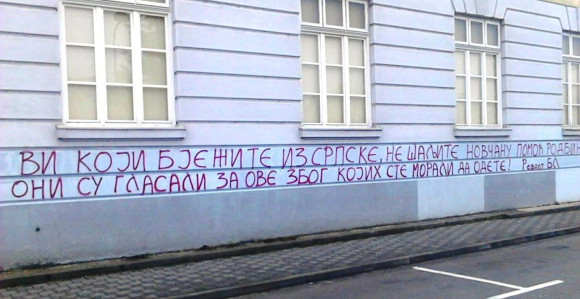 ВИ КОЈИ БЈЕЖИТЕ ИЗ СРПСКЕ, НЕ ШАЉИТЕ НОВЧАНУ ПОМОЋ РОДБИН
ОНИ СУ ГЛАСАЛИ ЗА ОВЕ ЗБОГ КОЈИХ СТЕ МОРАЛИ ДА ОДЕТЕ! Револт БЛ